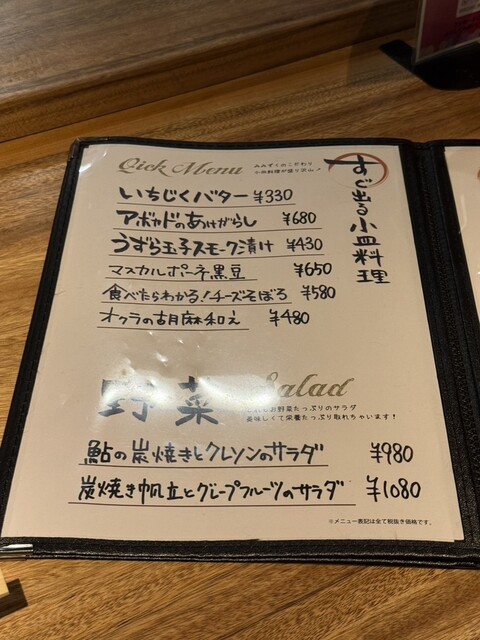 Qick Menu
みみずくのこだわり
小皿料理が盛り沢山！
すぐ出る小皿料理
いちじくバター ¥330
アボカドのあけがらし ¥680
うずら玉子スモーク漬け ¥430
マスカルポーネ黒豆 ¥650
食べたらわかる！チーズそぼろ ¥580
オクラの胡麻和え ¥480
野菜 Salad
お野菜たっぷりのサラダ
美味しくて栄養たっぷり取れちゃいます！
鮎の炭焼きとクレソンのサラダ ¥980
炭焼き帆立とグレープフルーツのサラダ ¥1080
※メニュー表記は全て税抜き価格です。